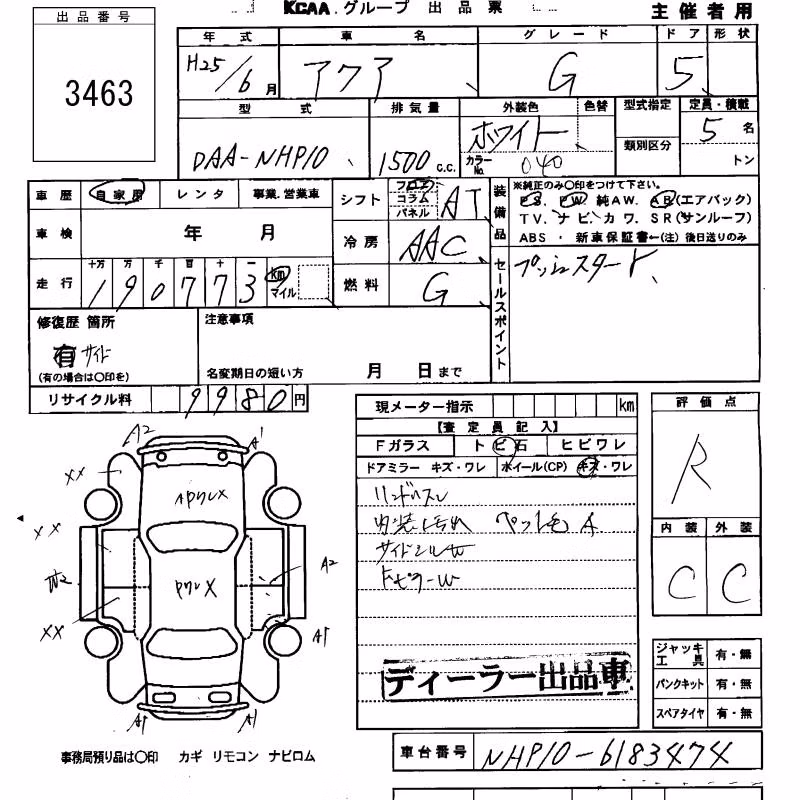 KCAA グループ 出品票
主催者用
出品番号
3463
年式 車名 グレード ドア 形状
H25/6月 アクア G 5
型式 排気量 外装色 色替 型式指定 定員・積載
DAA-NHP10 1500 c.c. ホワイト 類別区分 5名
カラーNo. 040 トン
車歴 自家用 レンタ 事業.営業車
シフト フロア コラム パネル AT
装備品
※純正のみ〇印をつけて下さい。
PS. PW 純AW. AB(エアバック)
TV. ナビ. カワ. SR(サンルーフ)
ABS ・ 新車保証書←(注) 後日送りのみ
車検 年 月
冷房 AAC
走行 十万 万 千 百 十 一
190773 km マイル
燃料 G
セールスポイント
プッシュスタート、
修復歴 箇所
有 サイド
(有の場合は〇印を)
注意事項
名変期日の短い方 月 日まで
リサイクル料 9980円
現メーター指示 km
【査定員記入】
Fガラス トビ石 ヒビワレ
ドアミラー キズ・ワレ ホイール(CP) キズ・ワレ
内装汚れ ペット毛 A
サイドシルW
ディーラー出品車
評価点
R
内装 外装
C C
ジャッキ工具 有・無
パンクキット 有・無
スペアタイヤ 有・無
A2 A1
XX
XX
W2
XX
A2
A1
A1 A1
X
X
事務局預り品は〇印 カギ リモコン ナビロム
車台番号 NHP10-6183474